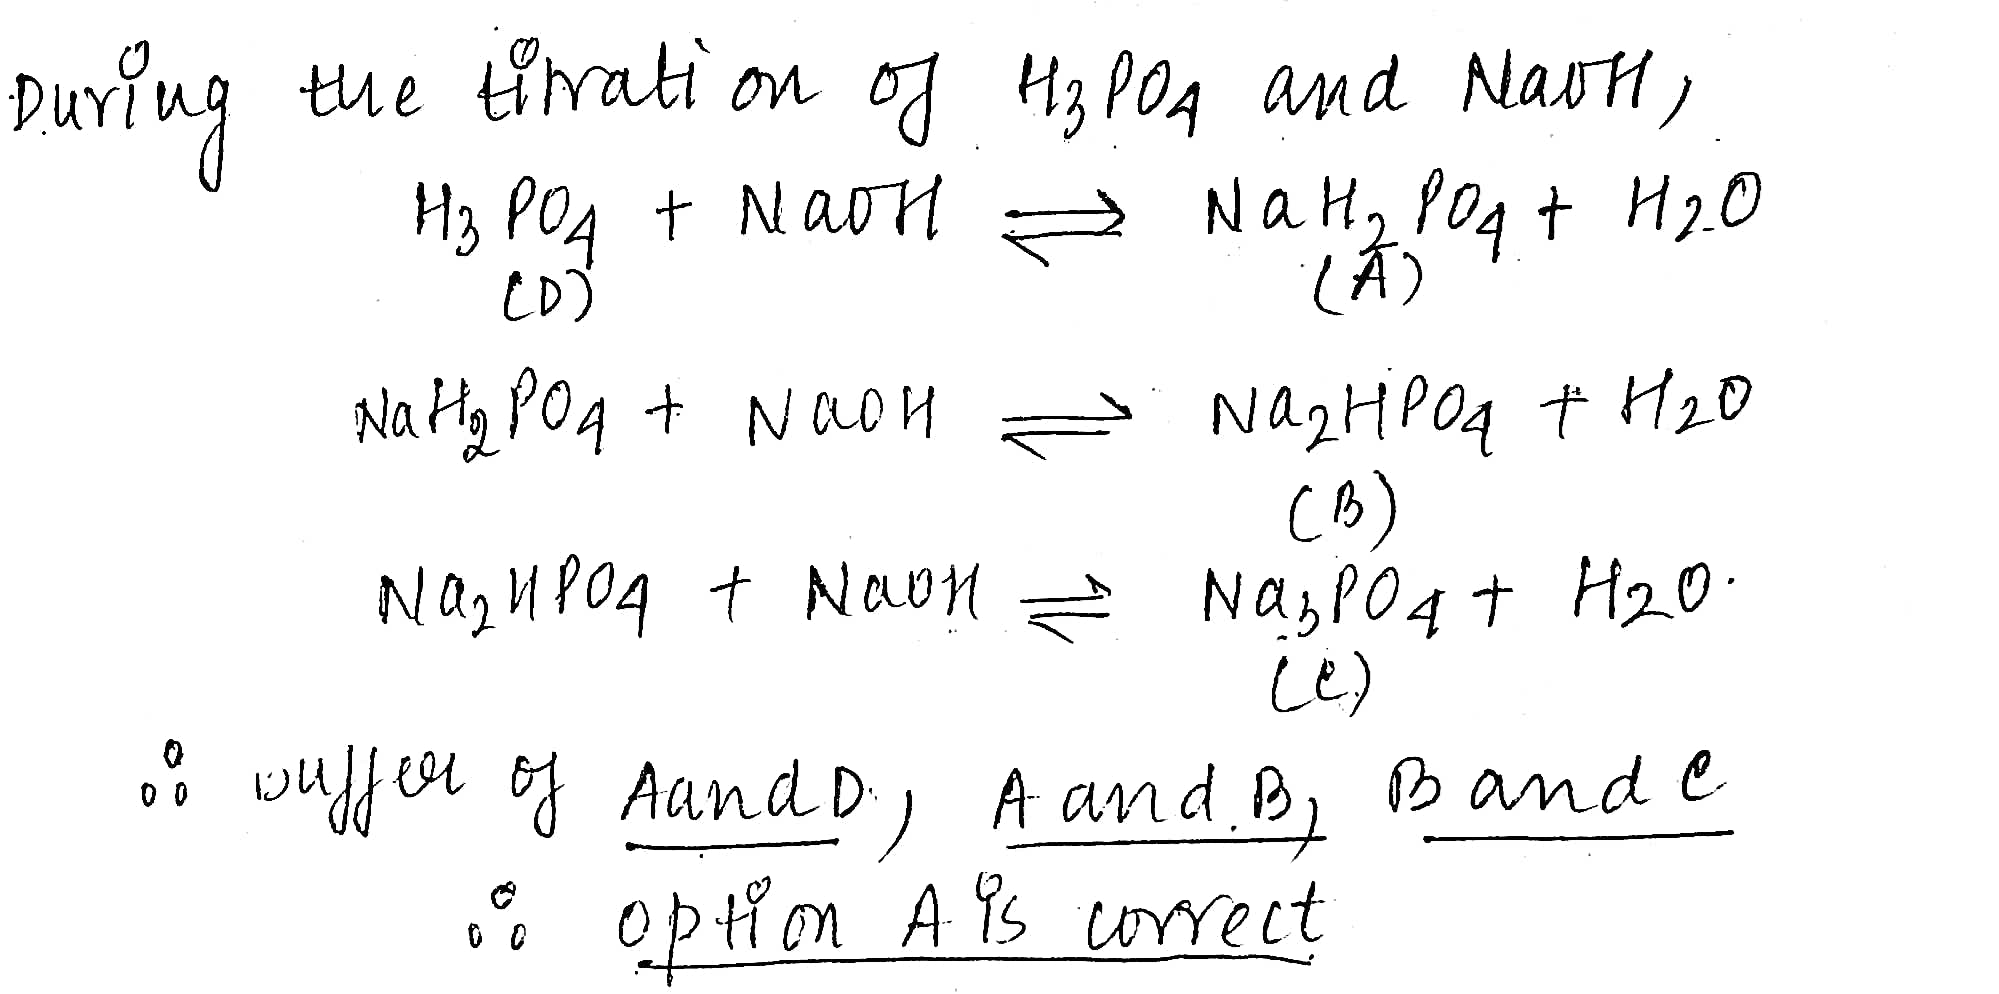 During the titration of H₃PO₄ and NaOH,
H₃PO₄ + NaOH ⇌ NaH₂PO₄ + H₂O
(D) (A)
NaH₂PO₄ + NaOH ⇌ Na₂HPO₄ + H₂O
(B)
Na₂HPO₄ + NaOH ⇌ Na₃PO₄ + H₂O.
(C)
∴ buffer of A and D, A and B, B and C
∴ option A is correct